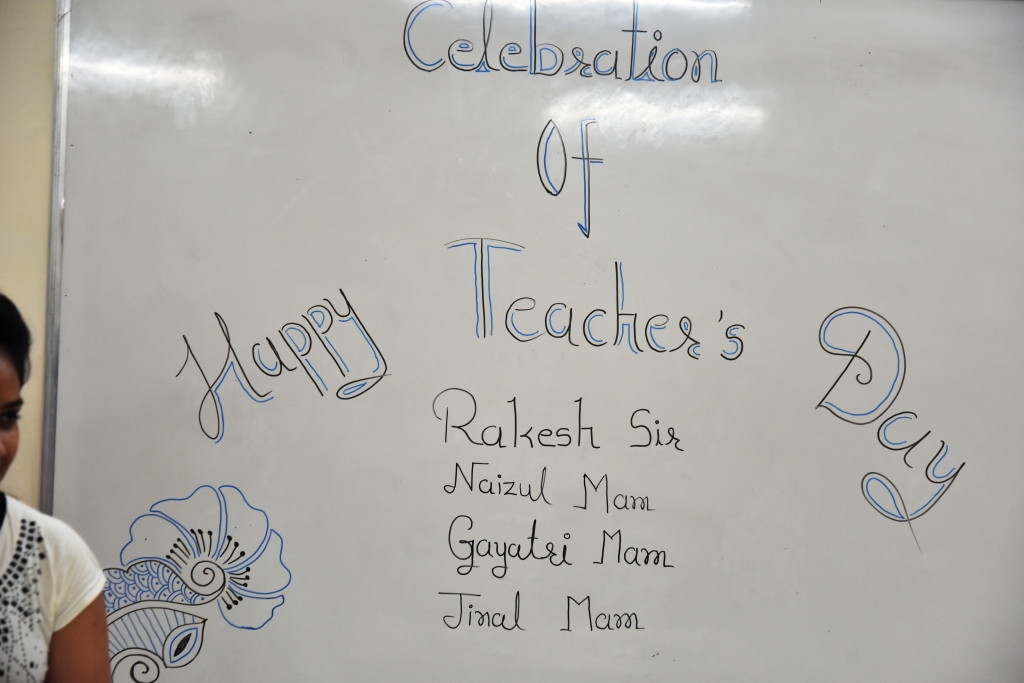 Celebration
Of
Happy Teacher's Day
Rakesh Sir
Naizul Mam
Gayatri Mam
Jinal Mam